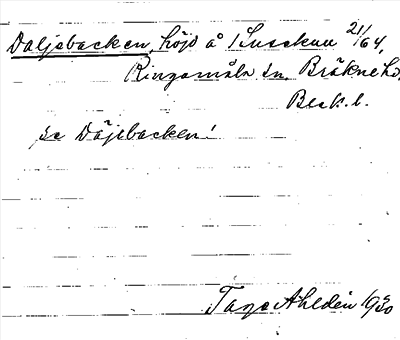 Daljebacken, höjd å 21/64,
Ringamåla sn, Bräkne hd.
Blek. l.
se Döjebacken!
Tage Ahldén 1930